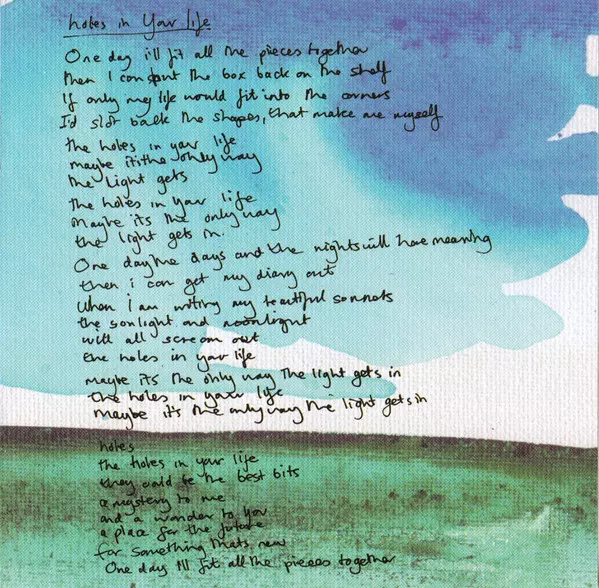 holes in Your life
One day i'll fit all the pieces together
then I can put the box back on the shelf
If only my life would fit into the corners
I'd slot back the shapes, that make me myself
the holes in your life
maybe its the only way
the light gets
the holes in your life
maybe its the only way
the light gets in.
One day the days and the nights will have meaning
then i can get my diary out
when I am writing my beautiful sonnets
the sonlight and moonlight
will all scream out
the holes in your life
maybe its the only way the light gets in
the holes in your life
maybe it's the only way the light gets in
holes
the holes in your life
they could be the best bits
a mystery to me
and a wonder to you
a place for the future
for something thats new
One day I'll fit all the pieces together